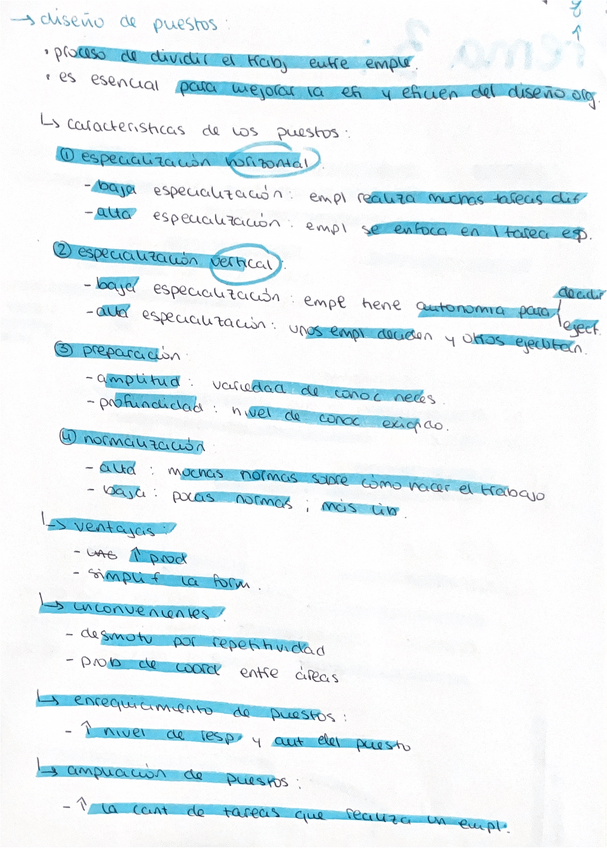 → diseño de puestos:
• proceso de dividir el trabj entre emple.
• es esencial para mejorar la efi y eficien del diseño org.
↳ características de los puestos:
① especialización horizontal
- baja especialización: empl realiza muchas tareas dif
- alta especialización: empl se enfoca en 1 tarea esp.
② especialización vertical:
- baja especialización: empl tiene autonomía para decidir eject.
- alta especialización: unos empl deciden y otros ejecutan.
③ preparación:
- amplitud: variedad de conoc neces.
- profundidad: nivel de conoc exigido.
④ normalización:
- alta: muchas normas sobre cómo hacer el trabajo
- baja: pocas normas; más lib.
↳ ventajas:
- ↑ prod
- simplif la form.
↳ inconvenientes:
- desmotv por repetitividad
- prob de coord entre áreas
↳ enrequicimiento de puestos:
- ↑ nivel de resp y aut del puesto
↳ ampliación de puestos:
- ↑ la cant de tareas que realiza un empl.